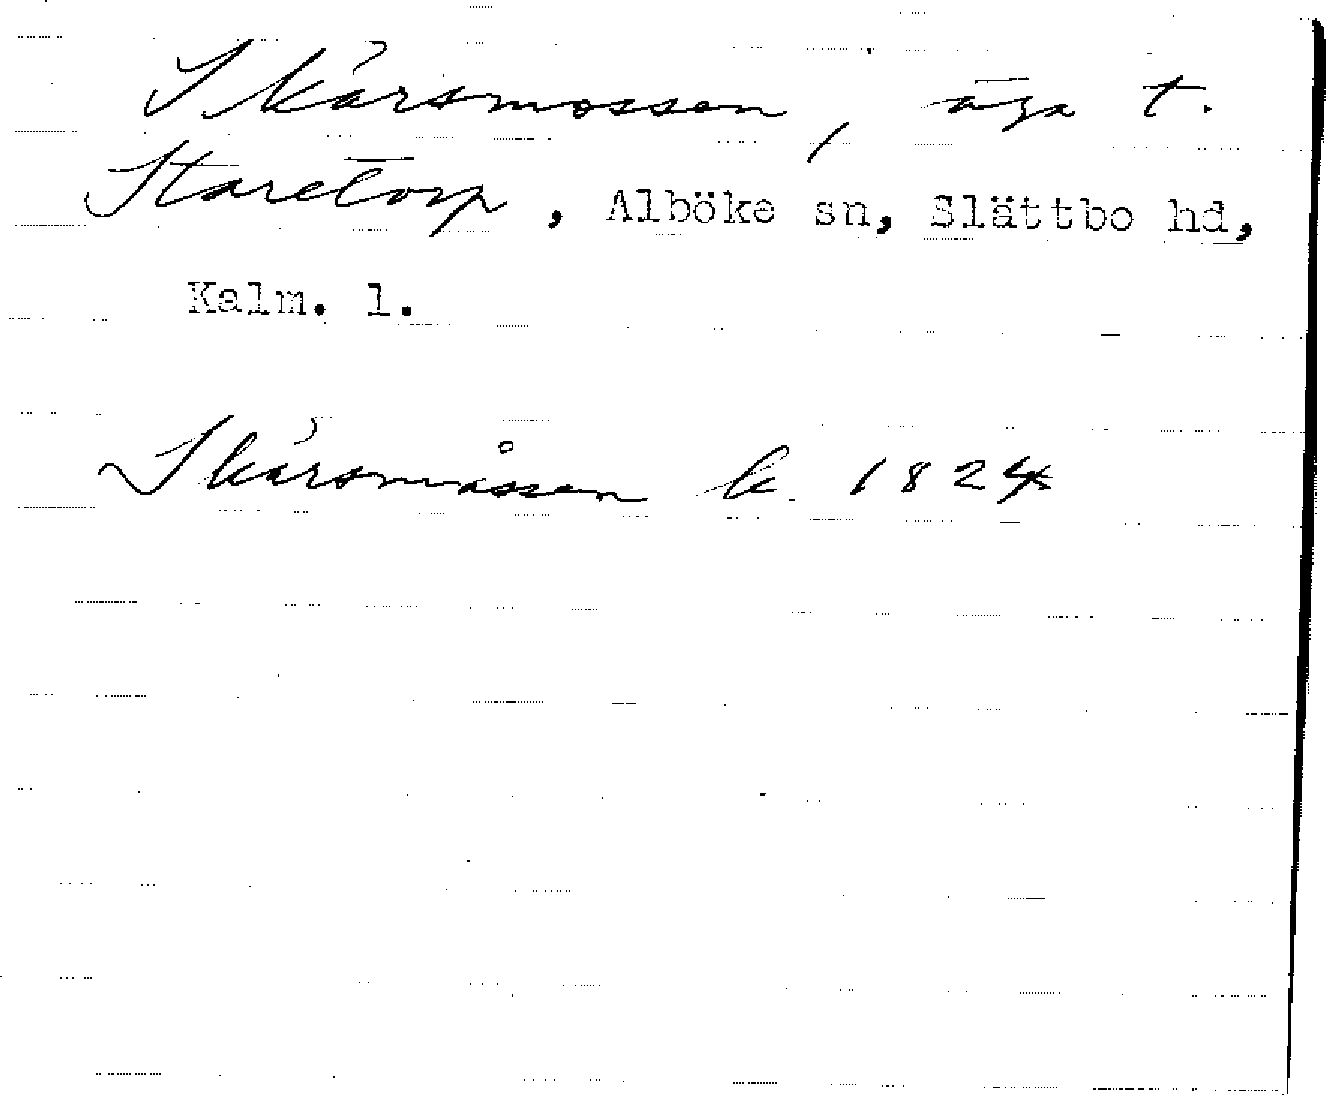 Skärsmossen, äga t.
Staretorp, Alböke sn, Slättbo hd,
Kalm. l.
Skårsmåssen k. 1824